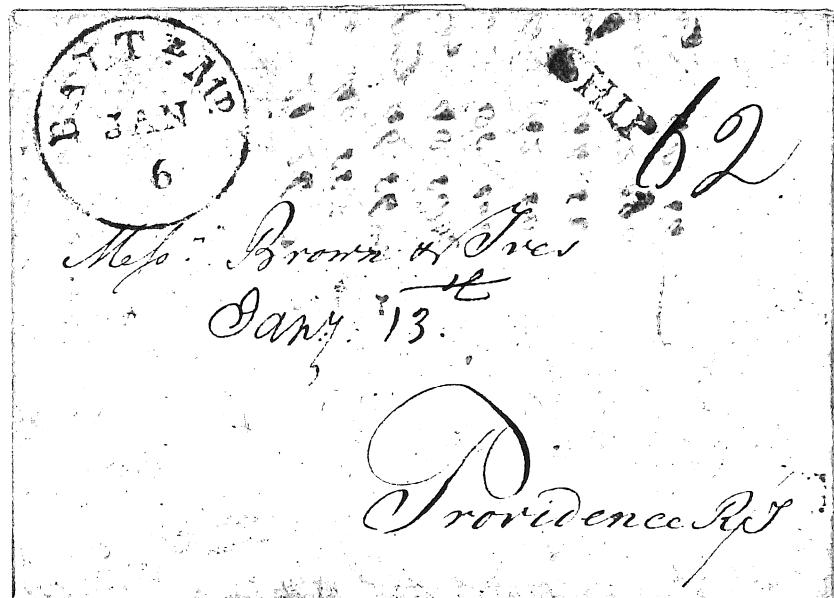 BALT. MD.
JAN
6
SHIP
62
Messrs Brown & Ives
Jany. 13th
Providence RI